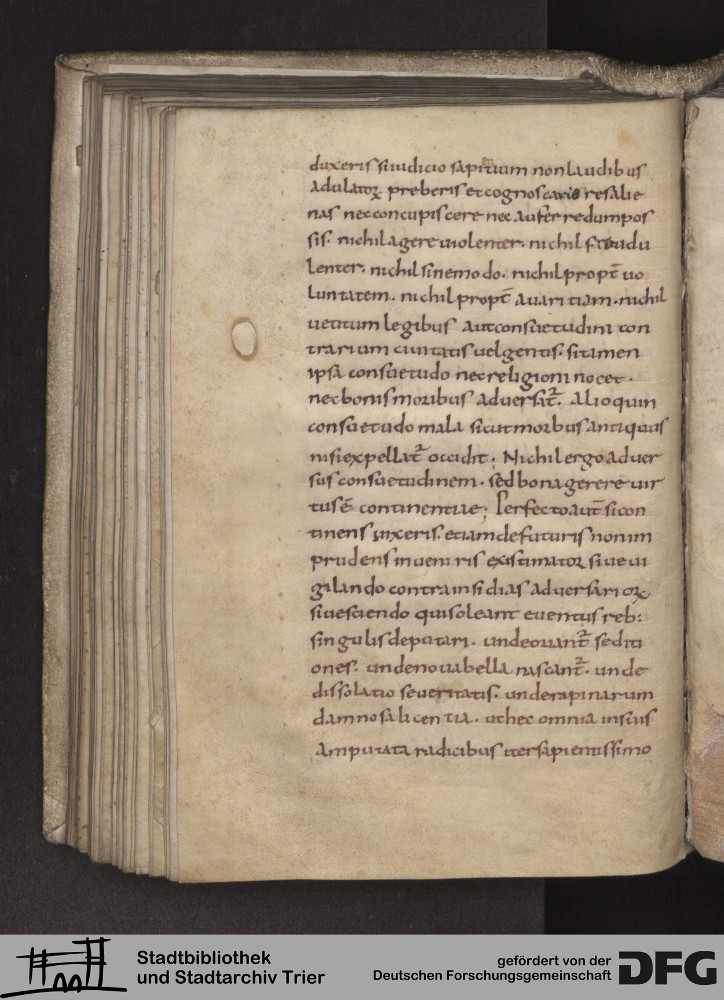 duxeris si iudicio sapitium non laudibus
adulatoꝝ preberis et cognoscaris res alie
nas nec concupiscere nec auferre dumpos
sis. nichil agere uiolenter. nichil fraudu
lenter. nichil sine modo. nichil propt̄ uo
luntatem. nichil propt̄ auaritiam. nichil
uetitum legibus aut consuetudini con
trarium ciuitatis uel gentis. si tamen
ipsa consuetudo nec religioni nocet.
nec bonis moribus aduersat᷑. Alioquin
consuetudo mala sicut morbus antiquus
nisi expellat᷑ occidit; Nichil ergo aduer
sus consuetudinem. sed bona gerere uir
tus ē continentiae; Perfecto aut̄ si con
tinens uixeris. etiam de futuris non im
prudens inueniris existimatoꝝ siue ui
gilando contra insidias aduersarioꝝ
siue sciendo qui soleant euentus reb:
singulis deputari. unde oriant᷑ sediti
ones. unde noua bella nascant᷑. unde
dissolatio seueritatis. unde rapinarum
damnosa licentia. ut hec omnia in suis
amputata radicibus iter sapientissimo
Stadtbibliothek
und Stadtarchiv Trier
gefördert von der
Deutschen Forschungsgemeinschaft
DFG